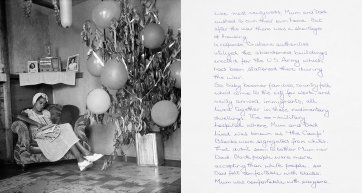 Like most newlyweds, Mum and Dad
wished to own their own home. But
after the war there was a shortage
of housing.
authorities
utilised the abandoned buildings
erected for the U.S. Army which
had been stationed there during
the war.
So baby boomer families, country folk
who came to the city for work, and
newly arrived immigrants, all
lived together in these rudimentary
dwellings. The ex-military
hospitals where Mum and Dad
lived was known as "The Camp".
Blacks were segregated from whites.
That didn't seem to bother Mum nor
Dad. Black people were more
accepting than white people, so
Dad felt comfortable with blacks.
Mum was comfortable with everyone.